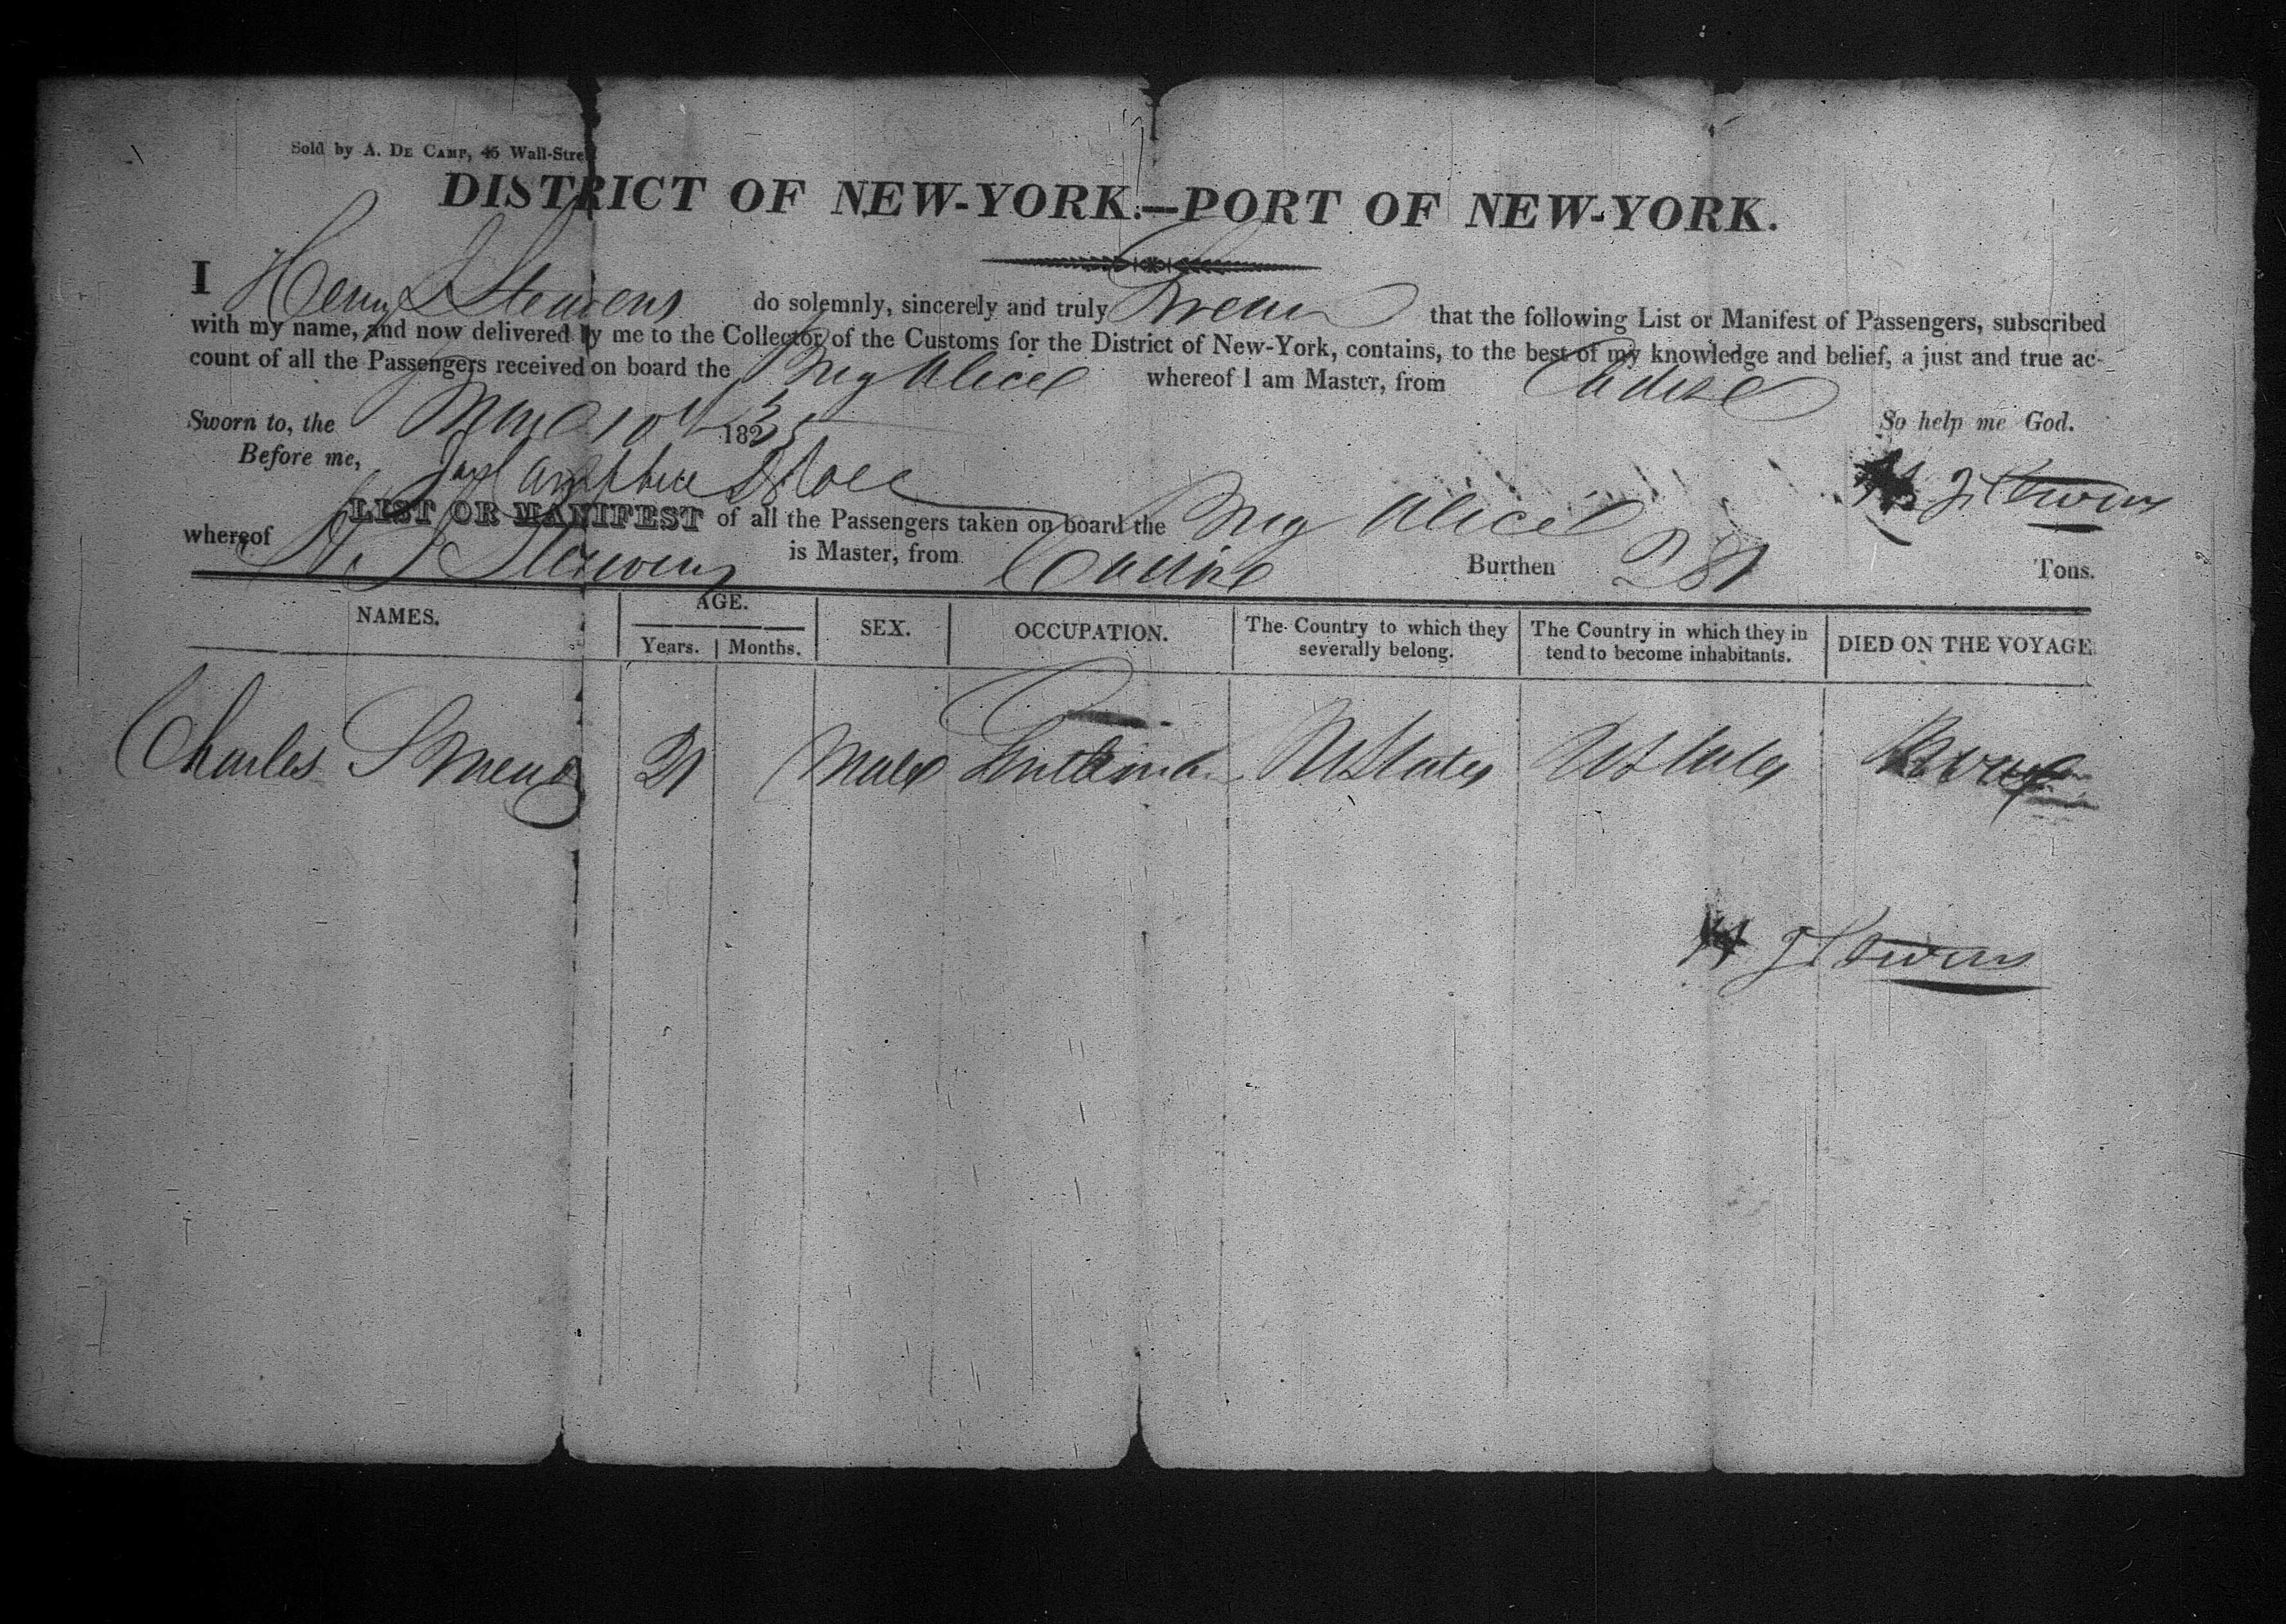 Sold by A. De Camp, 45 Wall-Stree
DISTRICT OF NEW-YORK.—PORT OF NEW-YORK.
I Henry J Stevens do solemnly, sincerely and truly Swear that the following List or Manifest of Passengers, subscribed
with my name, and now delivered by me to the Collector of the Customs for the District of New-York, contains, to the best of my knowledge and belief, a just and true ac-
count of all the Passengers received on board the Brig Alice whereof I am Master, from
So help me God.
Sworn to, the 10th 182
Before me,
LIST OR MANIFEST of all the Passengers taken on board the Brig Alice
whereof H. J Stevens is Master, from Burthen 281 Tons.
NAMES. AGE. SEX. OCCUPATION. The Country to which they severally belong. The Country in which they in tend to become inhabitants. DIED ON THE VOYAGE.
Years. Months.
Charles 21 Male Gentleman U States U States None
H J Stevens